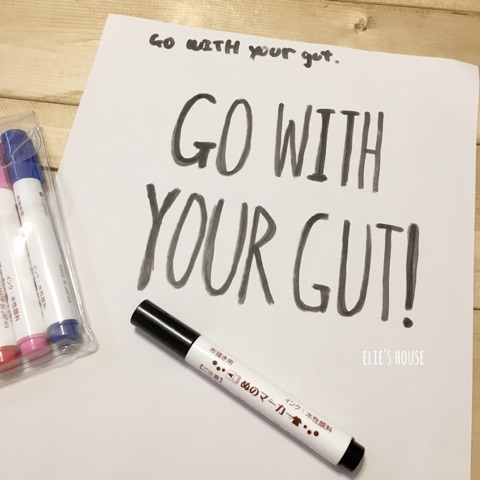 Go WITH your gut.
GO WITH
YOUR GUT!
ELIE'S HOUSE
布描き用
ぬのマーカー
インク：水性顔料